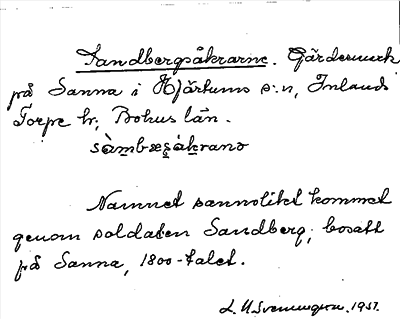 Sandbergsåkrarna. Gärdesmark
på Sanna i Hjärtums s:n, Inlands
Torpe hr, Bohus län.
sàmbæ̣ṣåkranǝ
Namnet sannolikt kommet
genom soldaten Sandberg, bosatt
på Sanna, 1800-talet.
L. H. Svennungson. 1951.